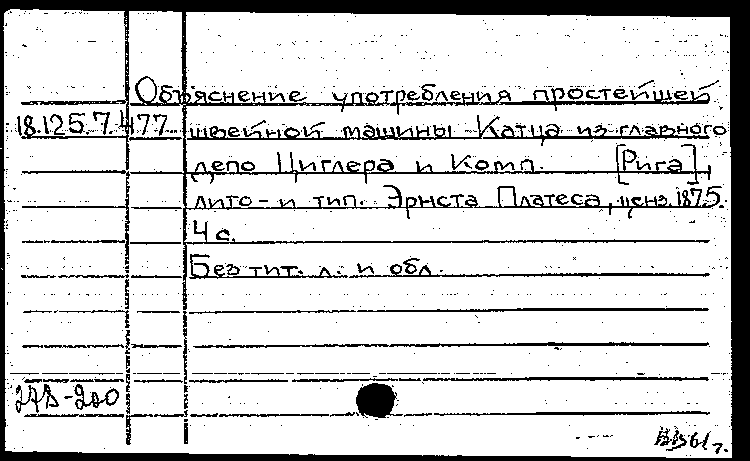 Объяснение употребления простейшей
18.125.7.477 швейной машины Катца из главного
депо Циглера и Комп. [Рига],
лито- и тип. Эрнста Платеса, ценз. 1875.
4 с.
Без тит. л. и обл.